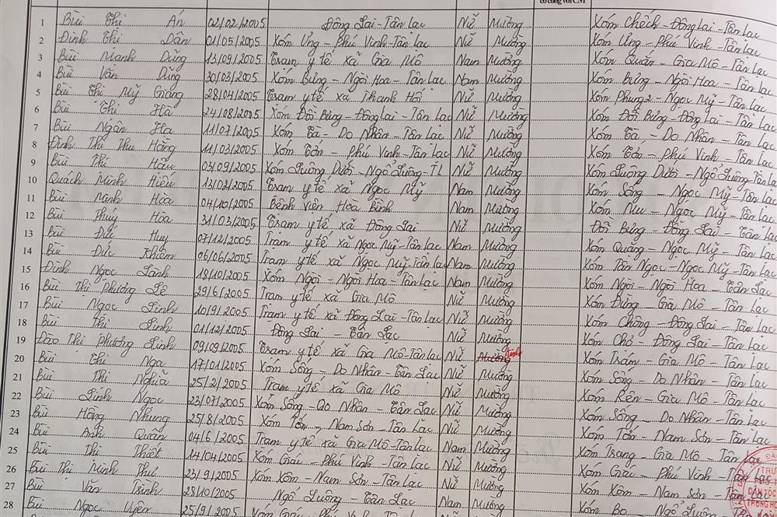 1 Bùi Thị Án 02/02/2005 Đông Lai - Tân Lạc Nữ Mường Xóm Chếch - Đông Lai - Tân Lạc
2 Đinh Thị Dần 01/05/2005 Xóm Ưng - Phú Vinh - Tân Lạc Nữ Mường Xóm Ưng - Phú Vinh - Tân Lạc
3 Bùi Mạnh Dũng 13/09/2005 Trạm y tế xã Gia Mô Nam Mường Xóm Quắn - Gia Mô - Tân Lạc
4 Bùi Văn Dũng 20/03/2005 Xóm Bưng - Ngòi Hoa - Tân Lạc Nam Mường Xóm Bưng - Ngòi Hoa - Tân Lạc
5 Bùi Thị Mỹ Giang 28/04/2005 Trạm y tế xã Thanh Hối Nữ Mường Xóm Phung 2 - Ngọc Mỹ - Tân Lạc
6 Bùi Thị Hà 24/08/2005 Xóm Đồi Bưng - Đông Lai - Tân Lạc Nữ Mường Xóm Đồi Bưng - Đông Lai - Tân Lạc
7 Bùi Ngân Hạ 11/07/2005 Xóm Tà - Do Nhân - Tân Lạc Nữ Mường Xóm Tà - Do Nhân - Tân Lạc
8 Đinh Thị Thu Hằng 11/03/2005 Xóm - Phú Vinh - Tân Lạc Nữ Mường Xóm - Phú Vinh - Tân Lạc
9 Bùi Thị Hậu 03/09/2005 Xóm Luông Dưới - Ngổ Luông - TL Nữ Mường Xóm Luông Dưới - Ngổ Luông - Tân Lạc
10 Quách Minh Hiếu 13/02/2005 Trạm y tế xã Ngọc Mỹ Nam Mường Xóm Sông - Ngọc Mỹ - Tân Lạc
11 Bùi Mạnh Hòa 04/10/2005 Bệnh viện Hoà Bình Nam Mường Xóm - Ngọc Mỹ - Tân Lạc
12 Bùi Thuý Hòa 31/03/2005 Trạm y tế xã Đông Lai Nữ Mường Đồi Bưng - Đông Lai - Tân Lạc
13 Bùi Đức Huy 07/12/2005 Trạm y tế xã Ngọc Mỹ - Tân Lạc Nam Mường Xóm Quặng - Ngọc Mỹ - Tân Lạc
14 Bùi Đức Khiêm 06/06/2005 Trạm y tế xã Ngọc Mỹ - Tân Lạc Nam Mường Xóm Tân Ngọc - Ngọc Mỹ - Tân Lạc
15 Đinh Ngọc Lành 18/10/2005 Xóm Ngòi - Ngòi Hoa - Tân Lạc Nam Mường Xóm Ngòi - Ngòi Hoa - Tân Lạc
16 Bùi Thị Phương Lê 29/6/2005 Trạm y tế xã Gia Mô Nữ Mường Xóm Đừng - Gia Mô - Tân Lạc
17 Bùi Ngọc Linh 10/9/2005 Trạm y tế xã Đông Lai - Tân Lạc Nữ Mường Xóm Chông - Đông Lai - Tân Lạc
18 Bùi Thị Linh 01/12/2005 Đông Lai - Tân Lạc Nữ Mường Xóm Chó - Đông Lai - Tân Lạc
19 Đào Thị Phương Linh 09/09/2005 Trạm y tế xã Gia Mô - Tân Lạc Nữ Mường Kinh Xóm Trám - Gia Mô - Tân Lạc
20 Bùi Thị Nga 17/01/2005 Xóm Sông - Do Nhân - Tân Lạc Nữ Mường Xóm Sông - Do Nhân - Tân Lạc
21 Bùi Thị Nghĩa 25/2/2005 Trạm y tế xã Gia Mô Nữ Mường Xóm Rên - Gia Mô - Tân Lạc
22 Bùi Linh Ngọc 23/07/2005 Xóm Sông - Do Nhân - Tân Lạc Nữ Mường Xóm Sông - Do Nhân - Tân Lạc
23 Bùi Hồng Nhung 25/8/2005 Xóm Tớn - Nam Sơn - Tân Lạc Nữ Mường Xóm Tớn - Nam Sơn - Tân Lạc
24 Bùi Anh Quân 04/6/2005 Trạm y tế xã Gia Mô - Tân Lạc Nam Mường Xóm Trang - Gia Mô - Tân Lạc
25 Bùi Thị Thiết 14/04/2005 Xóm Giác - Phú Vinh - Tân Lạc Nữ Mường Xóm Giác - Phú Vinh - Tân Lạc
26 Bùi Thị Minh Thư 23/9/2005 Xóm Xôm - Nam Sơn - Tân Lạc Nữ Mường Xóm Xôm - Nam Sơn - Tân
27 Bùi Văn Trình 28/10/2005 Ngổ Luông - Tân Lạc Nam Mường Xóm Bo - Ngổ Luông - Tân
28 Bùi Ngọc Uyên 25/9/2005 Xóm Giác - Phú Vinh - Tân Lạc Nữ Mường Xóm Giác - Phú Vinh